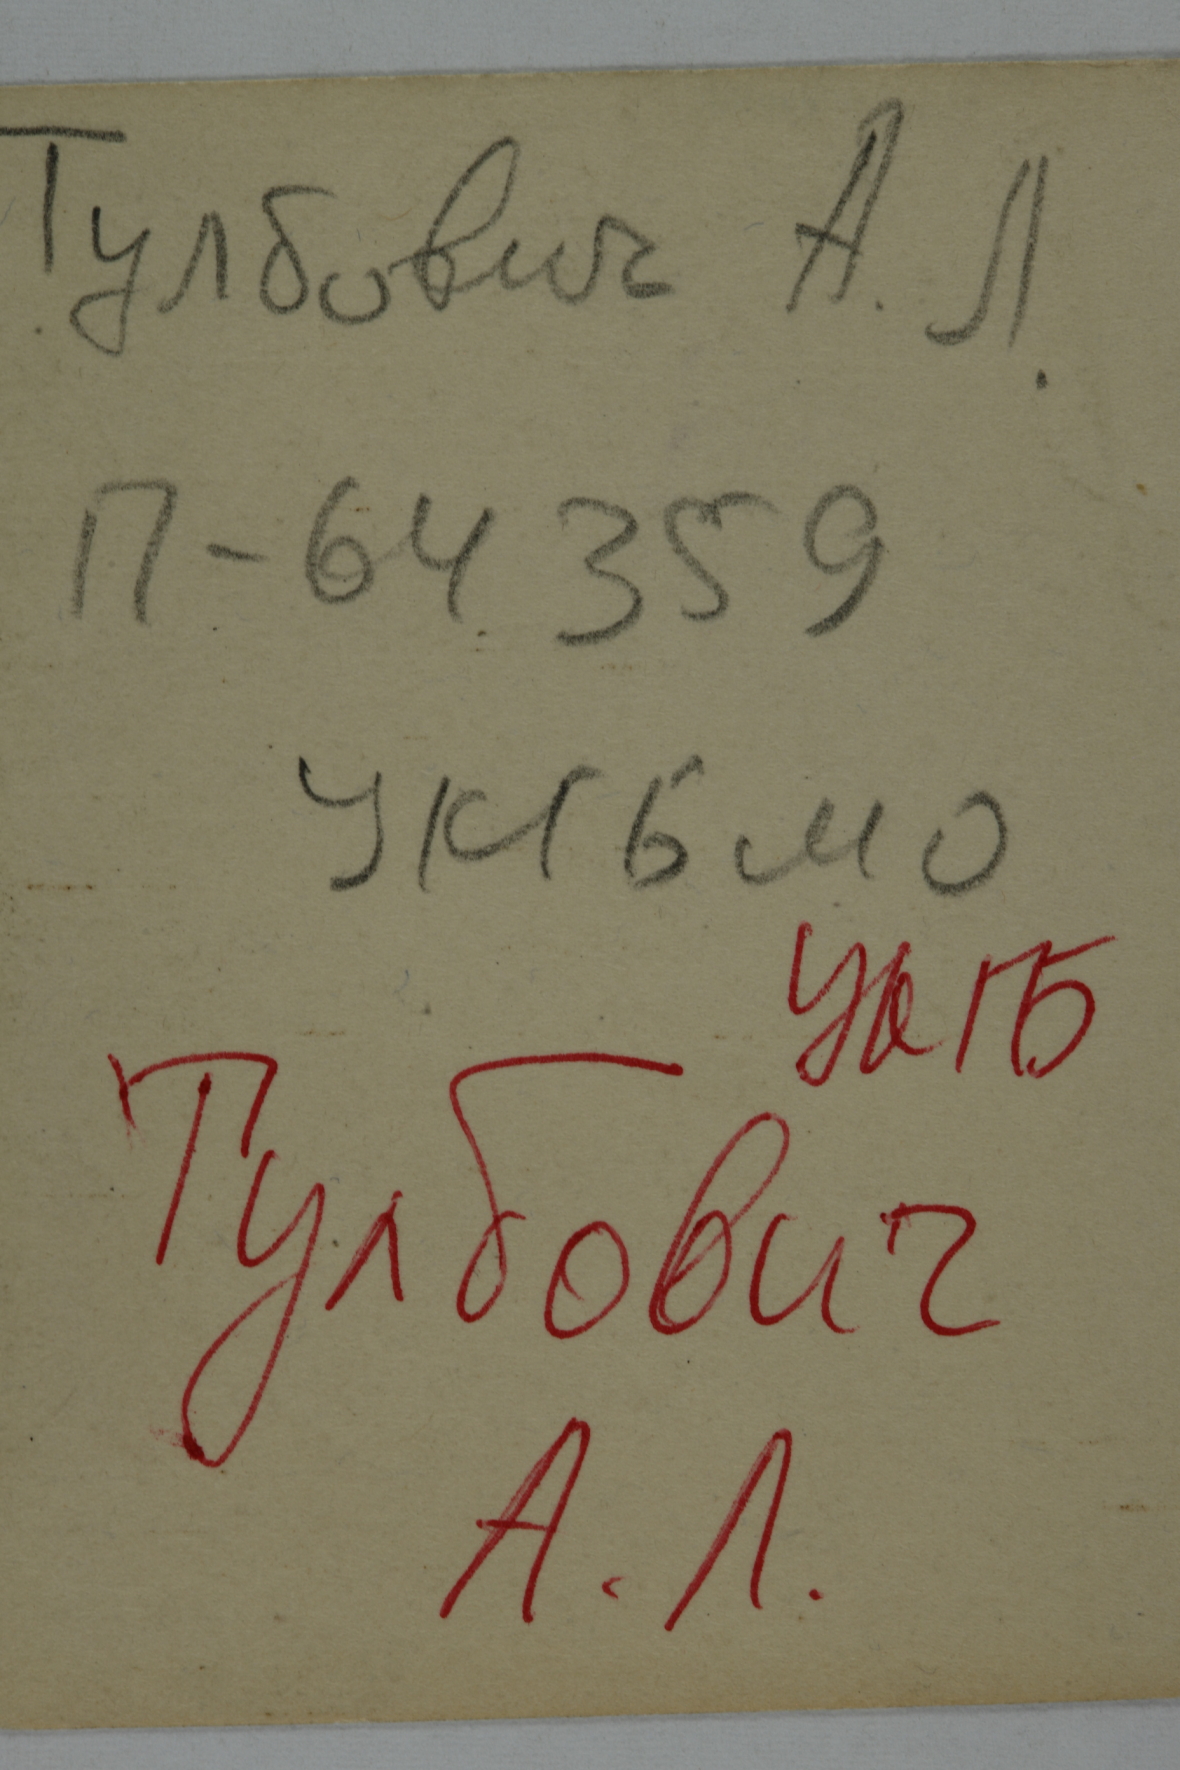 Тулбович А. Л.
П-64359
УКГБ МО
УКГБ
Тулбович
А. Л.